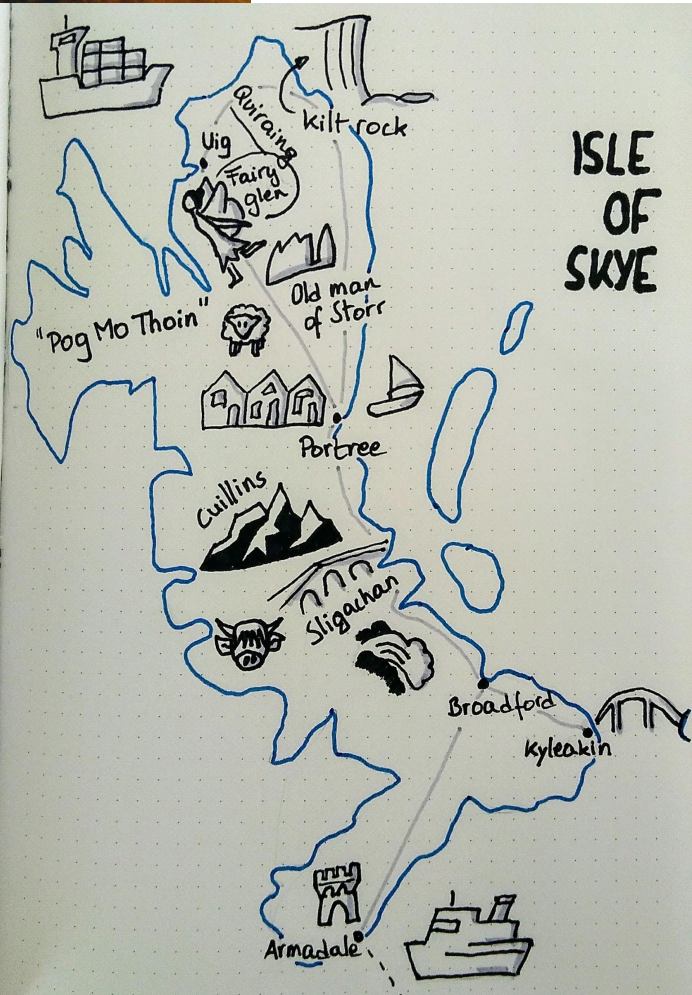 ISLE
OF
SKYE
Kilt rock
Quiraing
Uig
Fairy
glen
Old man
of Storr
"Pog Mo Thoin"
Portree
Cuillins
Sligachan
Broadford
Kyleakin
Armadale